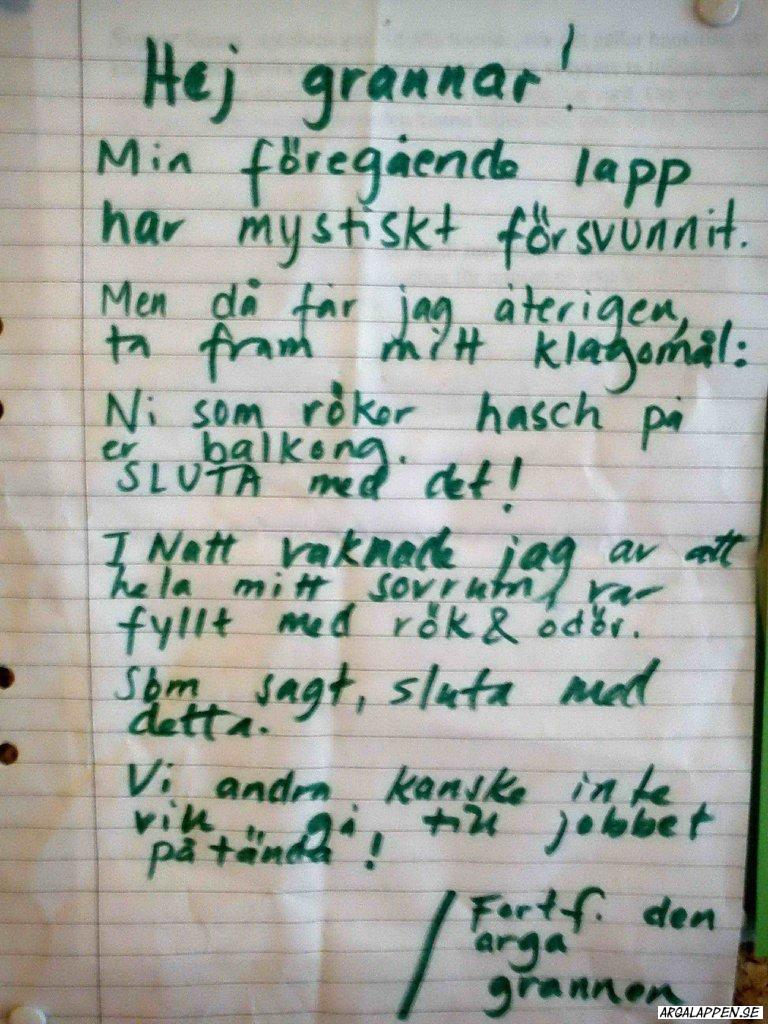 Hej grannar!
Min föregående lapp
har mystiskt försvunnit.
Men då får jag återigen,
ta fram mitt klagomål:
Ni som röker hasch på
er balkong.
SLUTA med det!
I Natt vaknade jag av att
hela mitt sovrum, var
fyllt med rök & odör.
Som sagt, sluta med
detta.
Vi andra kanske inte
vill gå till jobbet
påtända!
/ Fortf. den
arga
grannen
ARGALAPPEN.SE